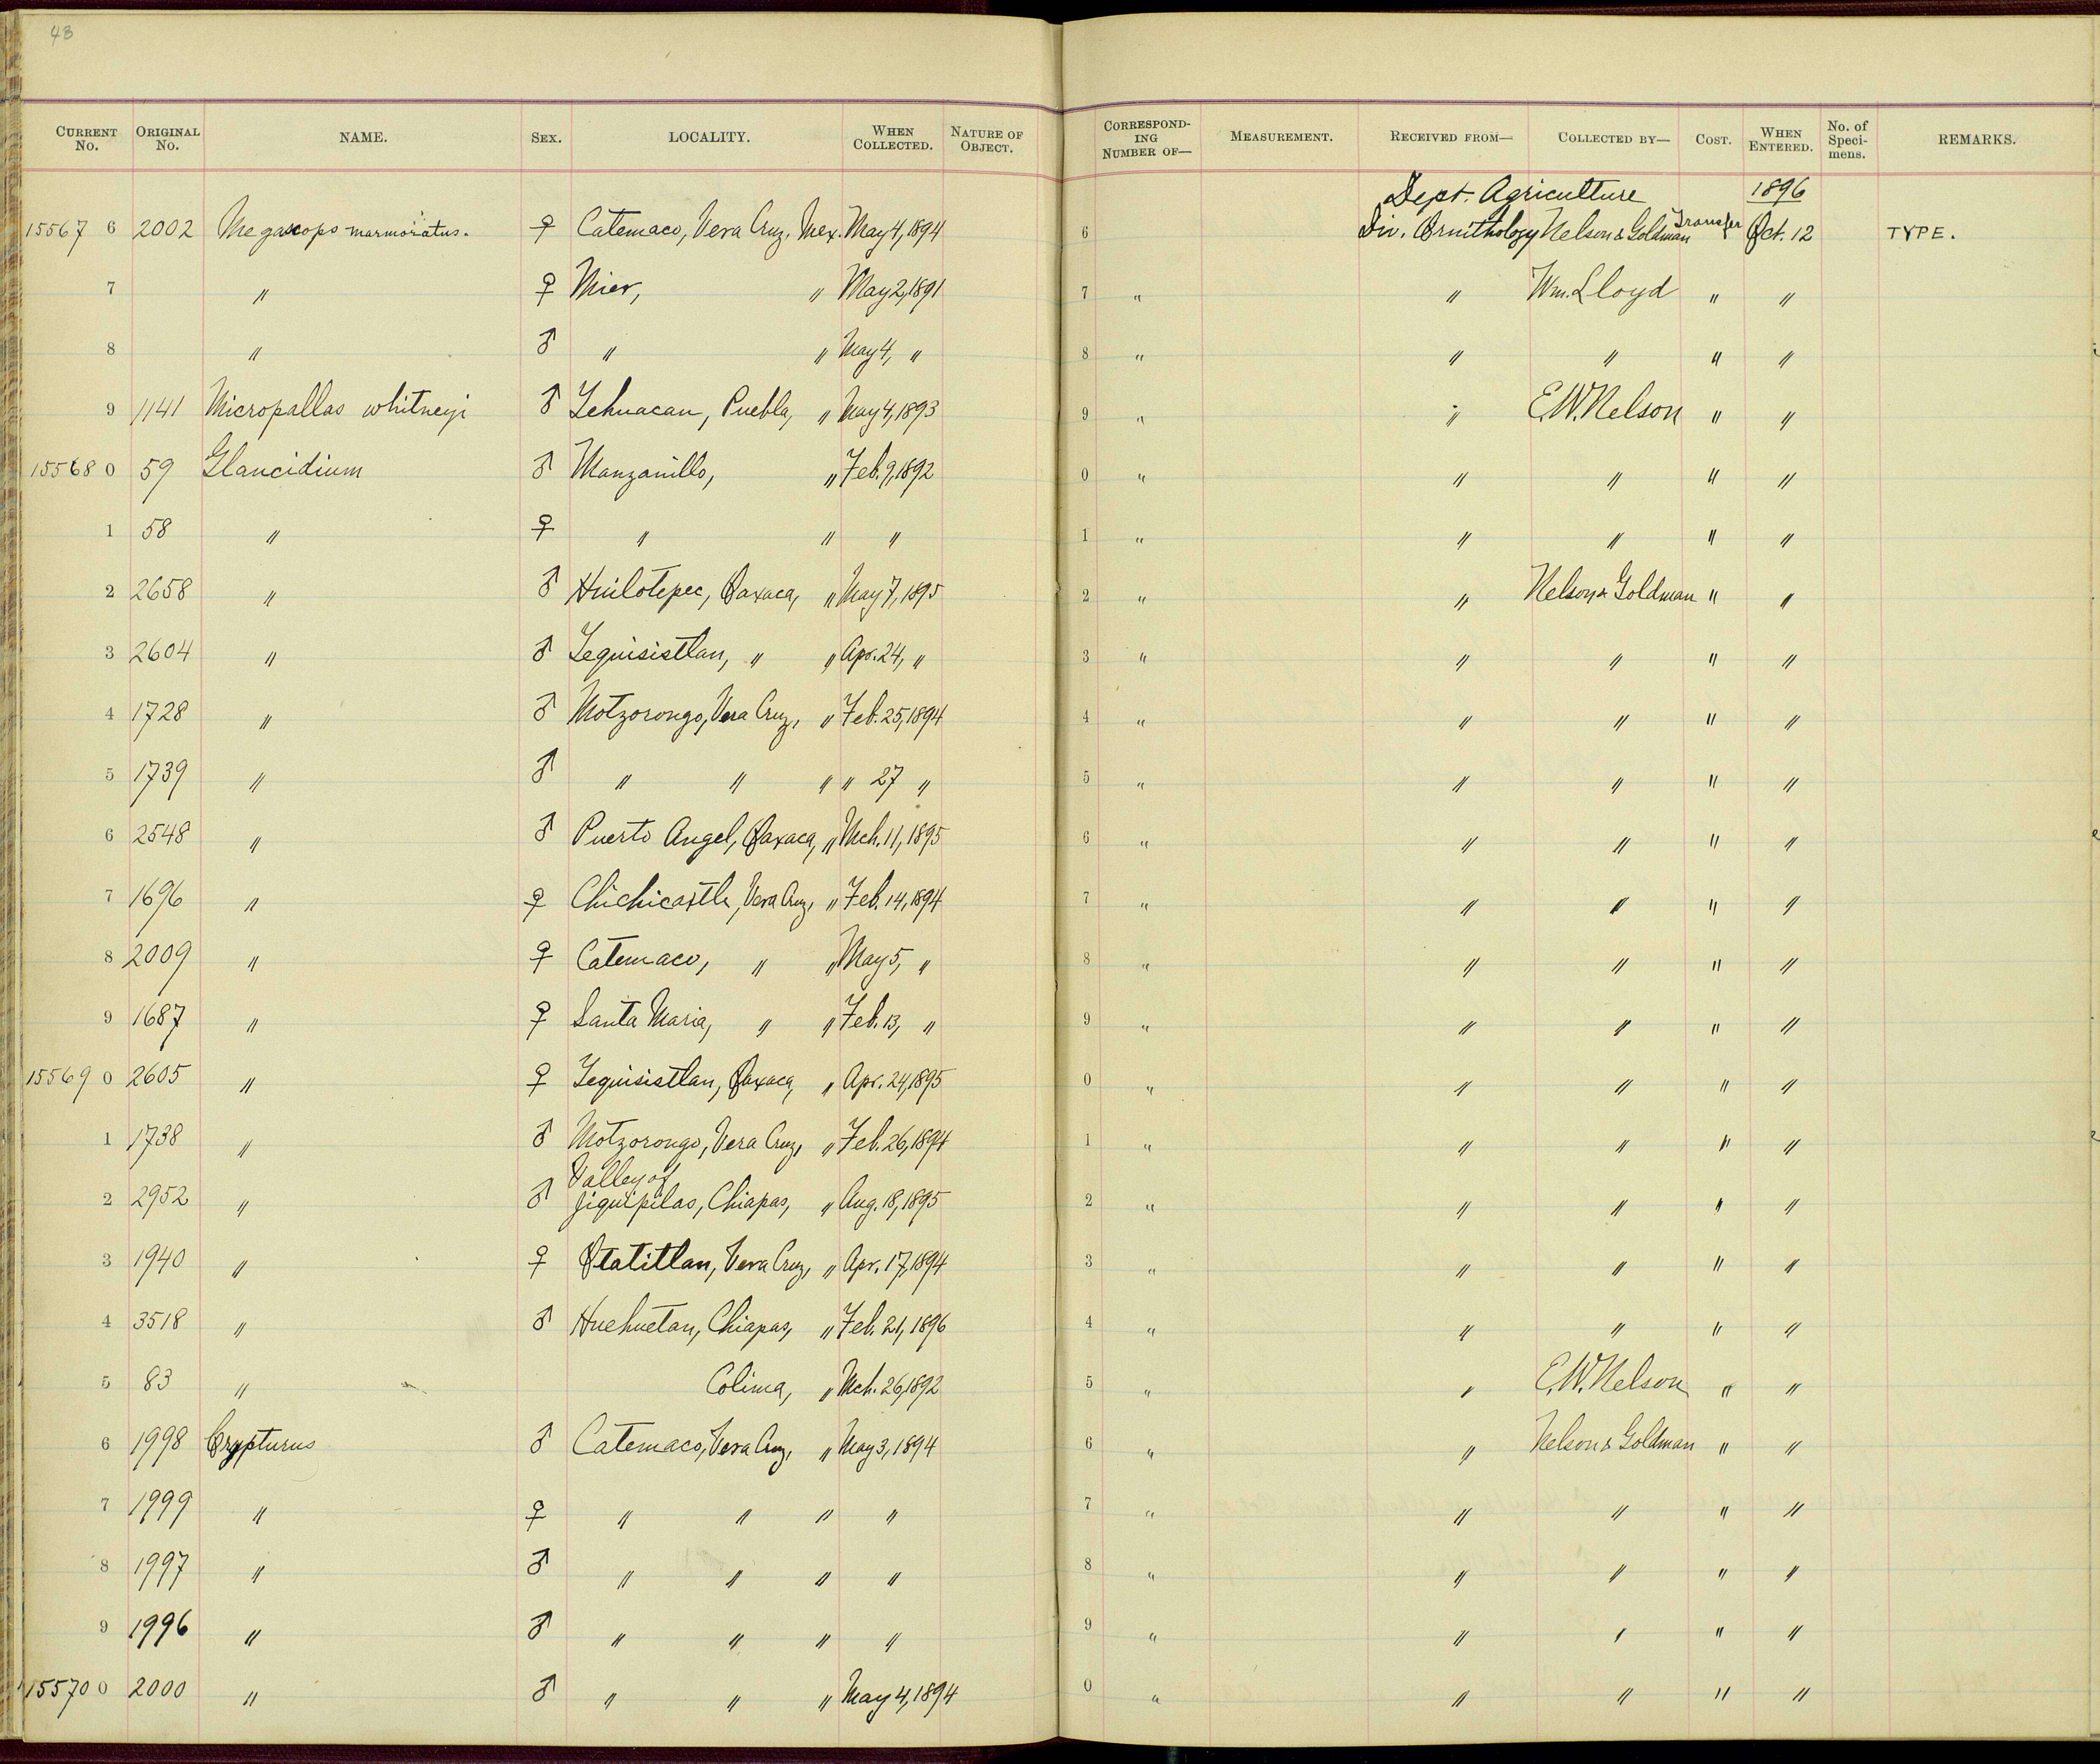 43
CURRENT No. ORIGINAL No. NAME. SEX. LOCALITY. WHEN COLLECTED. NATURE OF OBJECT. CORRESPONDING NUMBER OF— MEASUREMENT. RECEIVED FROM— COLLECTED BY— COST. WHEN ENTERED. No. of Specimens. REMARKS.
Dept. Agriculture 1896
15567 6 2002 Megascops marmoratus. ♀ Catemaco, Vera Cruz, Mex. May 4, 1894 6 Div. Ornithology Nelson & Goldman Transfer Oct. 12 TYPE.
7 " ♀ Mier, " May 2, 1891 7 " " Wm. Lloyd " "
8 " ♂ " " May 4, " 8 " " " " "
9 1141 Micropallas whitneyi ♂ Tehuacan, Puebla, " May 4, 1893 9 " " E.W. Nelson " "
15568 0 59 Glaucidium ♂ Manzanillo, " Feb. 9, 1892 0 " " " " "
1 58 " ♀ " " " 1 " " " " "
2 2658 " ♂ Huilotepec, Oaxaca, " May 7, 1895 2 " " Nelson & Goldman " "
3 2604 " ♂ Tequisistlan, " " Apr. 24, " 3 " " " " "
4 1728 " ♂ Motzorongo, Vera Cruz, " Feb. 25, 1894 4 " " " " "
5 1739 " ♂ " " " " 27 " 5 " " " " "
6 2548 " ♂ Puerto Angel, Oaxaca, " Mch. 11, 1895 6 " " " " "
7 1696 " ♀ Chichicastle, Vera Cruz, " Feb. 14, 1894 7 " " " " "
8 2009 " ♀ Catemaco, " " May 5, " 8 " " " " "
9 1687 " ♀ Santa Maria, " " Feb. 13, " 9 " " " " "
15569 0 2605 " ♀ Tequisistlan, Oaxaca, " Apr. 24, 1895 0 " " " " "
1 1738 " ♂ Motzorongo, Vera Cruz, " Feb. 26, 1894 1 " " " " "
Valley of
2 2952 " ♂ Jiquipilas, Chiapas, " Aug. 18, 1895 2 " " " " "
3 1940 " ♀ Otatitlan, Vera Cruz, " Apr. 17, 1894 3 " " " " "
4 3518 " ♂ Huehuetan, Chiapas, " Feb. 21, 1896 4 " " " " "
5 83 " Colima, " Mch. 26, 1892 5 " " E.W. Nelson " "
6 1998 Crypturus ♂ Catemaco, Vera Cruz, " May 3, 1894 6 " " Nelson & Goldman " "
7 1999 " ♀ " " " " 7 " " " " "
8 1997 " ♂ " " " " 8 " " " " "
9 1996 " ♂ " " " " 9 " " " " "
15570 0 2000 " ♂ " " " May 4, 1894 0 " " " " "